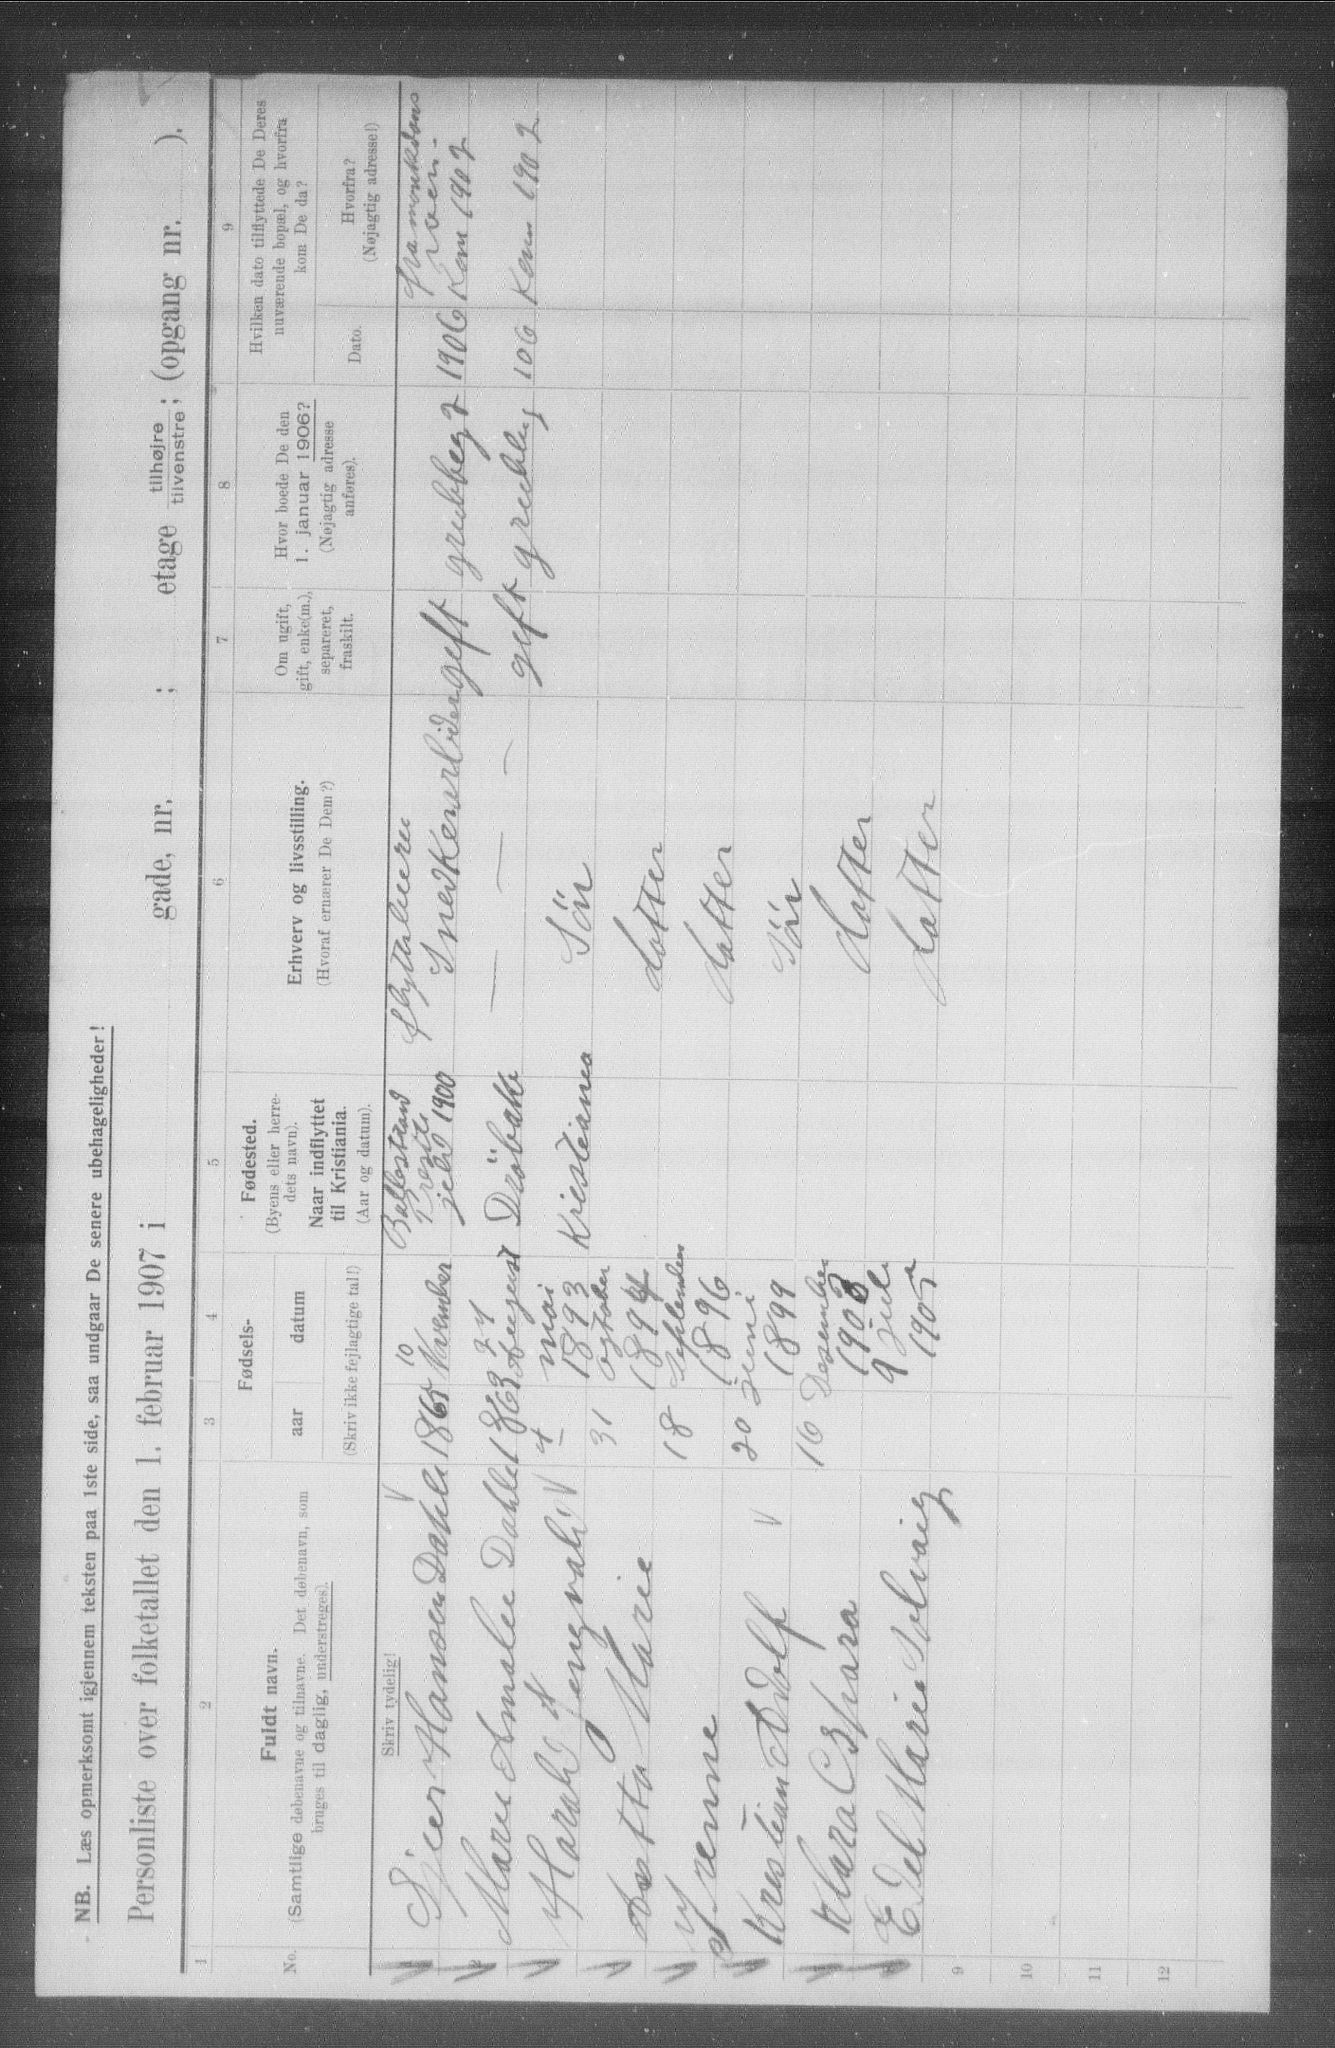 NB. Læs opmerksomt igjennem teksten paa 1ste side, saa undgaar De senere ubehageligheder!
Personliste over folketallet den 1. februar 1907 i gade, nr. ; etage tilhøjre tilvenstre; (opgang nr. ).
1 2 3 4 5 6 7 8 9
No.
Fuldt navn.
(Samtlige døbenavne og tilnavne. Det døbenavn, som
bruges til daglig, understreges).
Fødsels-
aar datum
(Skriv ikke fejlagtige tal!)
Fødested.
(Byens eller herre-
dets navn).
Naar indflyttet
til Kristiania.
(Aar og datum).
Erhverv og livsstilling.
(Hvoraf ernærer De Dem?)
Om ugift,
gift, enke(m.),
separeret,
fraskilt.
Hvor boede De den
1. januar 1906?
(Nøjagtig adresse
anføres).
Hvilken dato tilflyttede De Deres
nuværende bopæl, og hvorfra
kom De da?
Dato.
Hvorfra?
(Nøjagtig adresse!)
Skriv tydelig!
Hansen Dahle 1865 10 November Ballestrand 1900 Snedkerarbider geft 1906 Kom 1902
2 Marie Amalie Dahle 1863 August Dröbakk geft 106 Kom 1902
Harald 4 mai 1893 Kristiania Sön
Asta Marie 31 october 1894 datter
Yrenne 18 1896 datter
Kristian Adolf 20 Juni 1899 Sön
Klara 16 Desember datter
Edel Marie Solvaig 9 Juli 1905 datter
9
10
11
12